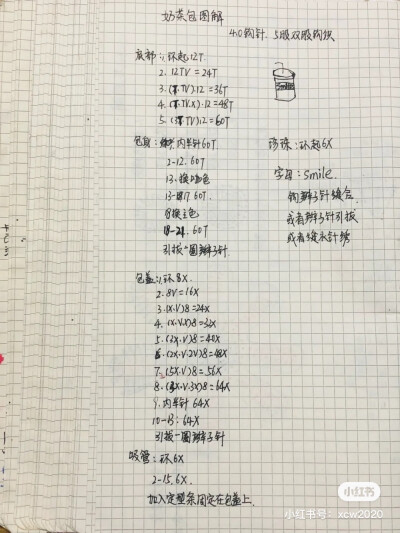 奶茶包图解
4.0钩针. 5股双股钩织
底部: 1. 环起12T
2. 12TV = 24T
3. (T.TV).12 = 36T
4. (T.TV.X).12 = 48T
5. (3T.TV)12 = 60T
包身: 内半针60T
2-12. 60T
13. 换咖色
13-17 60T
18换主色
18-24. 60T
引拔一圈辫子针.
珍珠: 环起6X
字母: smile.
钩辫子针缝合
或者辫子针引拔
或者缝永针绣
包盖: 1. 环8X.
2. 8V = 16X
3. (X.V)8 = 24X
4. (X.V.X)8 = 32X
5. (3X.V)8 = 40X
6. (2X.V.2X)8 = 48X
7. (5X.V)8 = 56X
8. (3X.V.3X)8 = 64X
9. 内半针 64X
10-13: 64X
引拔一圈辫子针
吸管: 环6X
2-15. 6X
加入定型条固定在包盖上.
小红书
小红书号: xcw2020